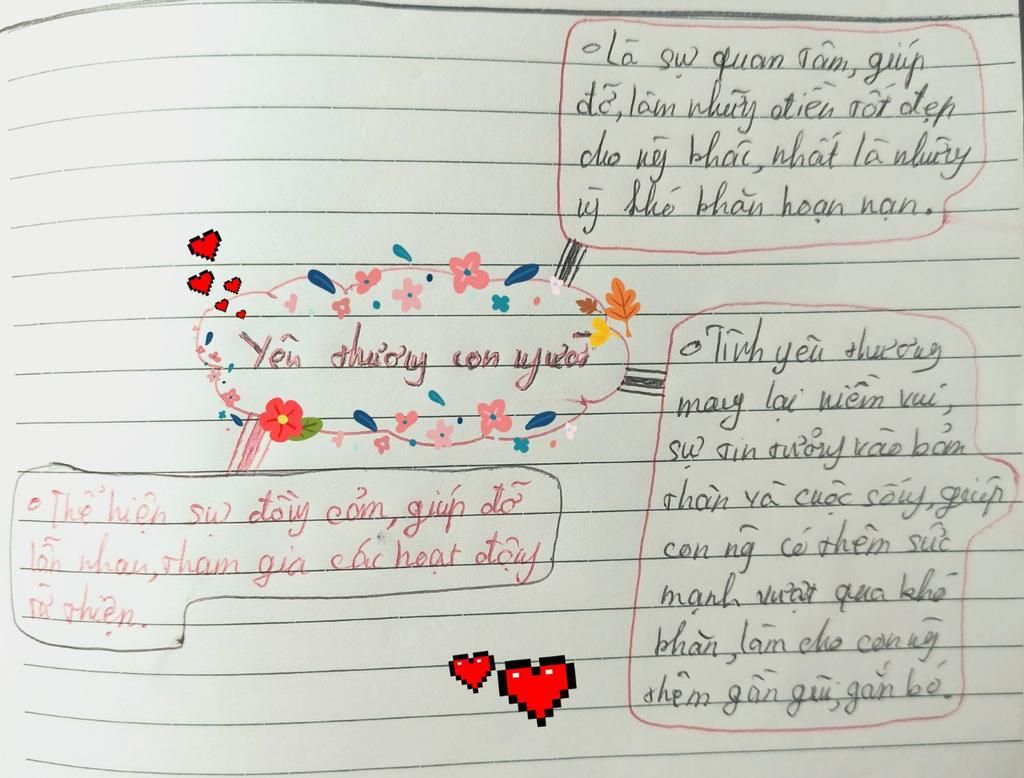 Là sự quan tâm, giúp
đỡ, làm những điều tốt đẹp
cho ng khác, nhất là những
ng khó khăn hoạn nạn.
Yêu thương con người
Tình yêu thương
mang lại niềm vui,
sự tin tưởng vào bản
thân và cuộc sống, giúp
con ng có thêm sức
mạnh vượt qua khó
khăn, làm cho con ng
thêm gần gũi, gắn bó.
Thể hiện sự đồng cảm, giúp đỡ
lẫn nhau, tham gia các hoạt động
từ thiện.